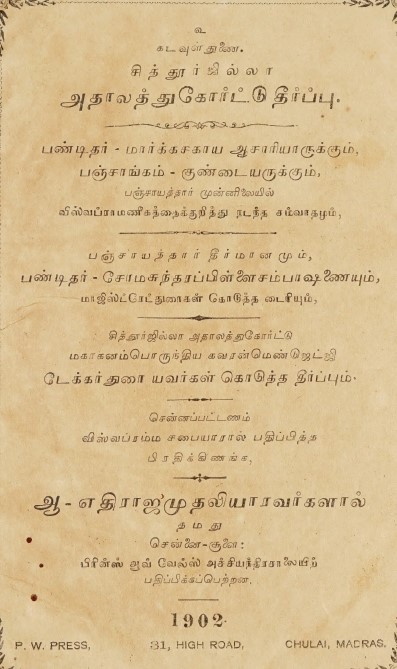 உ
கடவுள்துணை.
சித்தூர்ஜில்லா
அதாலத்துகோர்ட்டு தீர்ப்பு.
பண்டிதர் - மார்க்கசகாய ஆசாரியாருக்கும்,
பஞ்சாங்கம் - குண்டையருக்கும்,
பஞ்சாயத்தார் முன்னிலையில்
விஸ்வப்ராமணீகத்தைக்குறித்து நடந்த சம்வாதமும்,
பஞ்சாயத்தார் தீர்மானமும்,
பண்டிதர் - சோமசுந்தரப்பிள்ளைசம்பாஷணையும்,
மாஜிஸ்ட்ரேட்துரைகள் கொடுத்த டைரியும்,
சித்தூர்ஜில்லா அதாலத்துகோர்ட்டு
மகாகனம்பொருந்திய கவரன்மெண்டுஜட்ஜி
டேக்கர்துரை யவர்கள் கொடுத்த தீர்ப்பும்.
சென்னப்பட்டணம்
விஸ்வப்ரம்ம சபையாரால் பதிப்பித்த
பிரதிக்கிணங்க,
ஆ - எதிராஜமுதலியாரவர்களால்
தமது
சென்னை-சூளை:
பிரின்ஸ் ஆவ் வேல்ஸ் அச்சியந்திரசாலையிற்
பதிப்பிக்கப்பெற்றன.
1902.
P. W. PRESS, 31, HIGH ROAD, CHULAI, MADRAS.